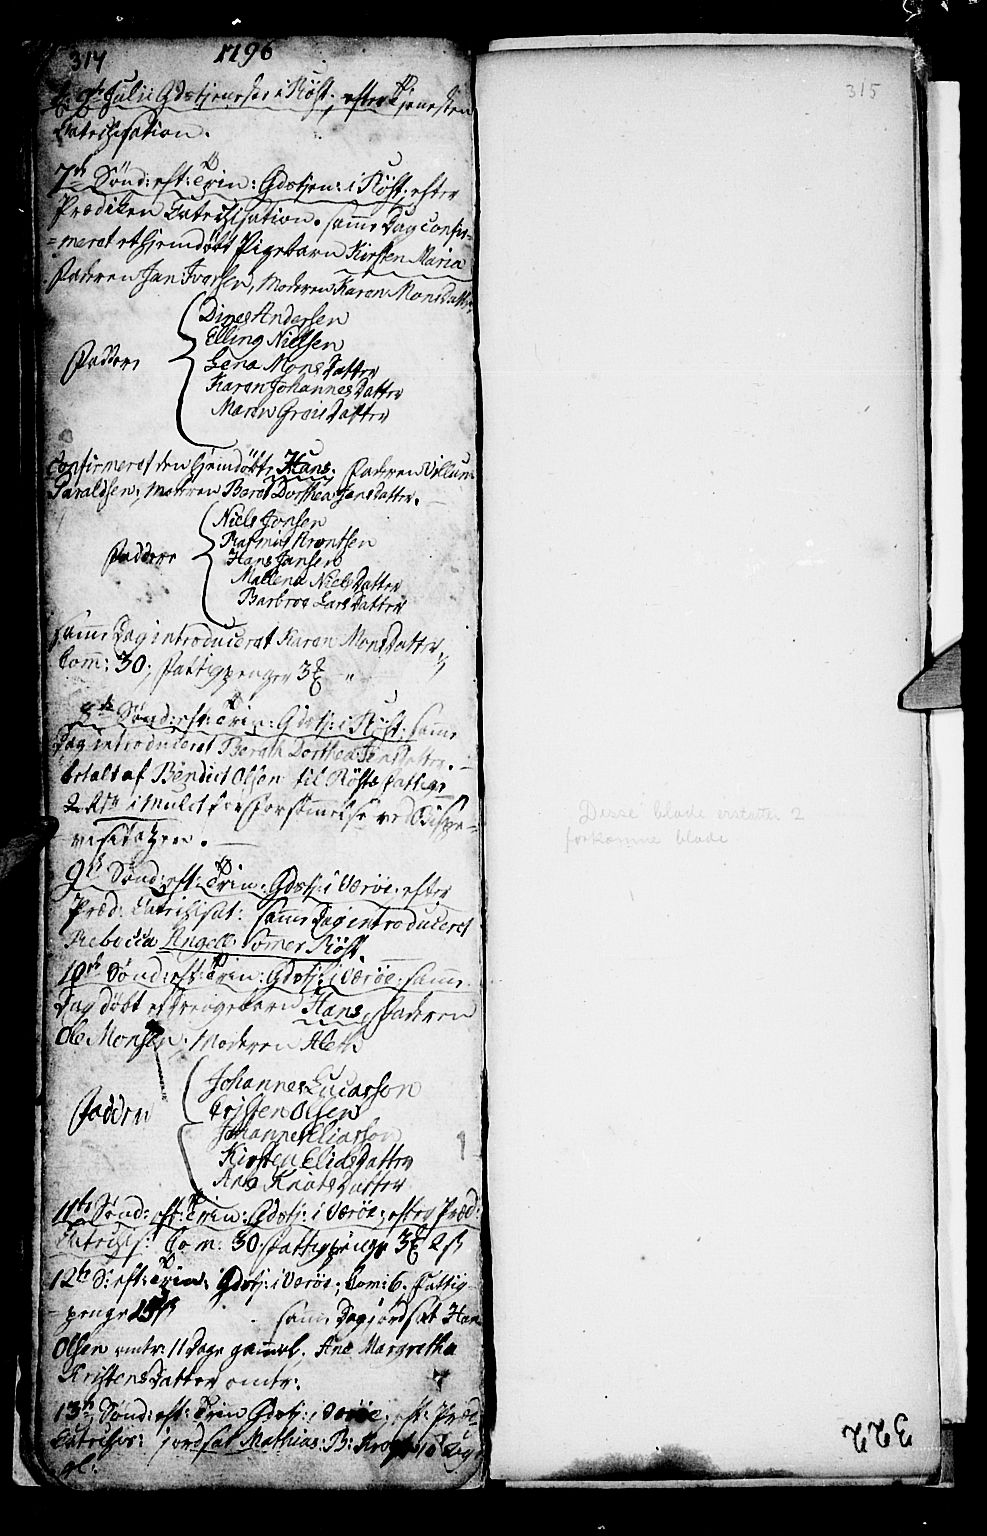 314 1796
Julii Gdstjeneste i Röst, efter tjenesten
Catechisation.
7de Sönd: eft: Trin: Gdstjen: i Röst, efter
Prædiken Catechisation. samme Dag confir=
=meret et hjemdöbt Pigebarn Kirsten Maria
Faderen Jan Ivarsen, Moderen Karen MonsDatter
Faddere
Dines Andersen
Elling Nielsen
Lena MonsDatter
Karen JohannesDatter
Maren DatterDatter
Confirmeret den hjemdöbte Hans. Faderen Villum
Haraldsen, Moderen Beret Dorthea JensDatter.
Faddere
Niels Jonsen
Rasmus
Hans Jansen
Mallena NielsDatter
Barbroe LarsDatter
samme Dag introduceret Karen MonsDatter
Com: 30, Fattigpenger 3
8de Sönd: eft: Trin: Gdstj: i Röst: samme
Dag introduceret Berith Dorthea JensDatter.
betalt af Bendict Olsen til Rösts Fattige
2 i Mulct for Forsömmelse ved Bispe=
visitatzen.
9de Sönd: eft: Trin: Gdstj: i Væröe, efter
Præd: Catechisat: samme Dag introduceret
Rebecca Angell Sömer Röst.
10de Sönd: eft: Trin: Gdstj: i Væröe: samme
Dag döbt et Drengebarn Hans, Faderen
Ole Monsen, Moderen Aleth
Faddere
Johannes Lucasson
Cristen Olsen
Johannes Eliasson
Kirsten EliasDatter
Ane KnutsDatter
11te Sönd: eft: Trin: Gdstj: i Væröe, efter Præd:
Catechis: Com: 30. Fattigpenge 3 2 ß
12te S: eft: Trin: Gdstj: i Væröe, Com: 6. Fattig=
=penge 15 ß samme Dag jordsat Hans
Olsen omtr: 11 Dage gammel. Ane Margretha
KristensDatter omtr:
13de Sönd: eft: Trin Gdstj: i Væröe, eft: Præd
Catechis: jordsat Mathias: B: 10 Dage
gl:
315
Disse blade erstatter 2
forkomne blade
322